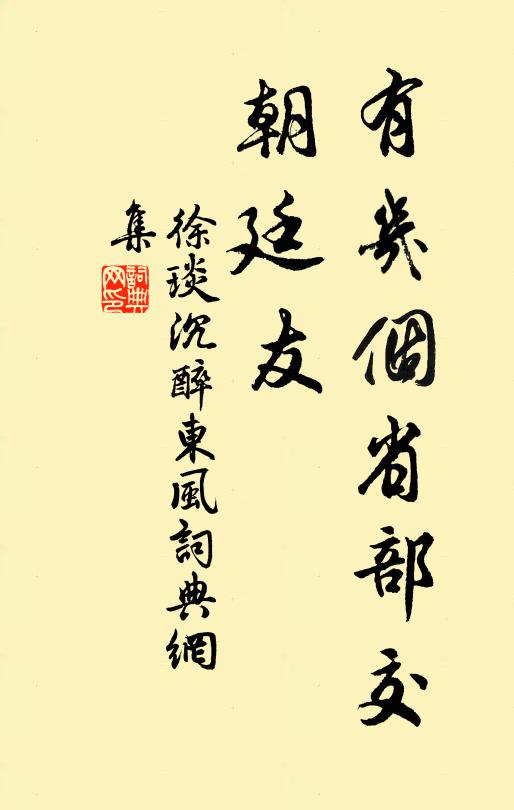 有幾個省部交
朝廷友
徐琰沉醉東風詞典網
集
詞典
网印